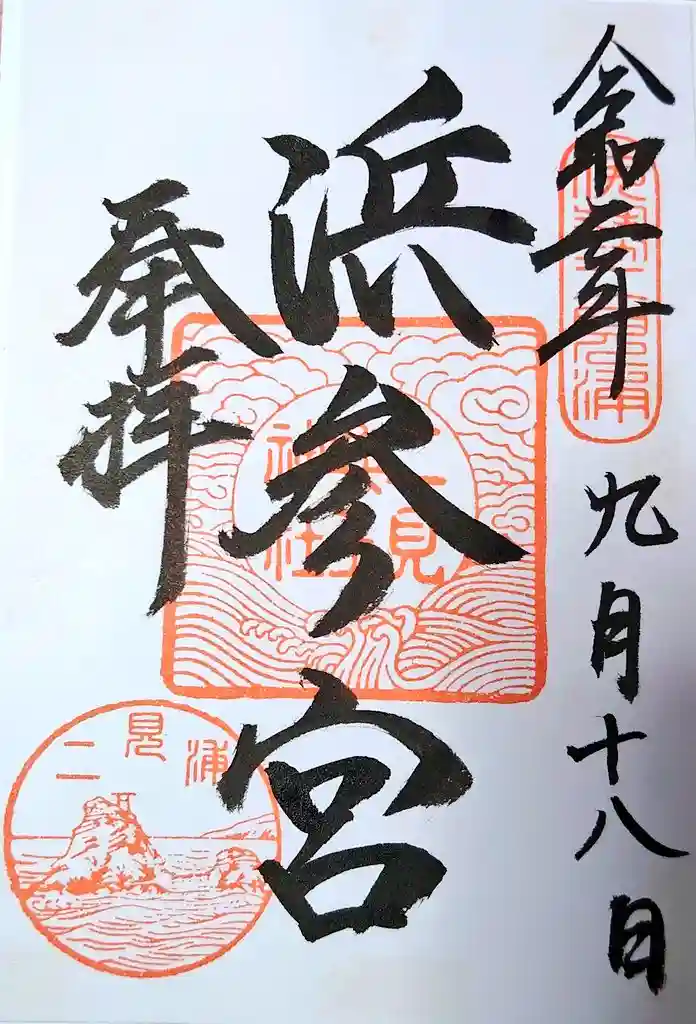 令和
年
九月十八日
伊勢二見浦
浜参宮
二見
興玉
神社
奉拝
二見浦